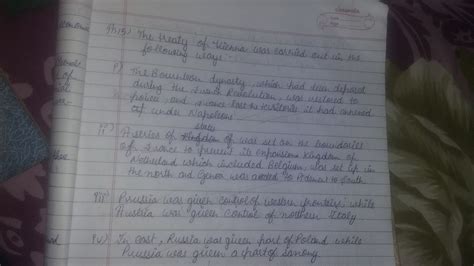 The treaty of Vienna was carried out in the
following ways :-
i) The Bourbon dynasty, which had been deposed
during the French Revolution, was restored to
power, and France lost the territories it had annexed
under Napoleon
states
ii) A series of was set on the boundaries
of France to prevent its expansion Kingdom of
Netherland which included Belgium, was set up in
the north and Genoa was added to to South
iii) Prussia was given control of western frontiers, while
Austria was given control of northern Italy
iv) In east, Russia was given part of Poland while
Prussia was given a part of Saxony